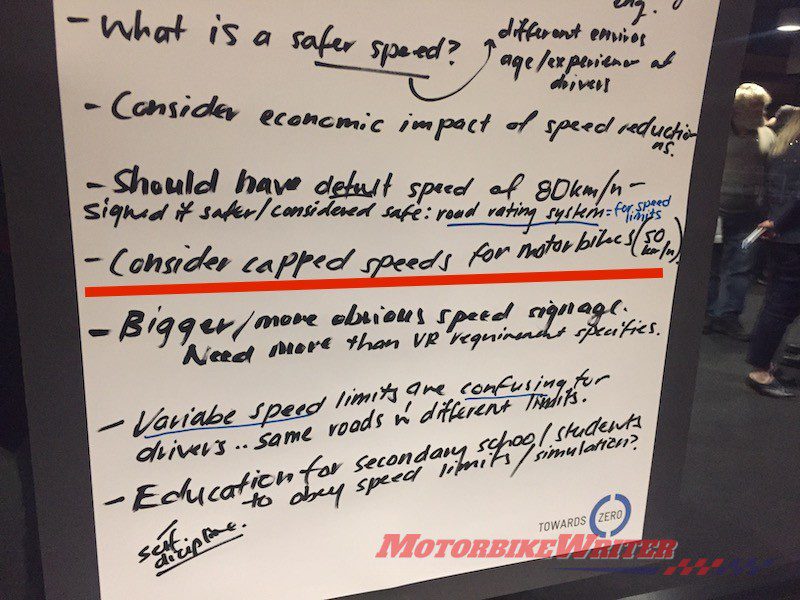 eng.
- What is a safer speed?
different enviros
age/experience of
drivers
- Consider economic impact of speed reductio
ns.
- Should have default speed of 80km/h -
signed if safer/considered safe: road rating system = for speed
limits
- Consider capped speeds for motorbikes (50
km/h)
- Bigger/more obvious speed signage.
Need more than VR requirement specifies.
- Variabe speed limits are confusing for
drivers.. same roads different limits.
- Education for secondary school/students
to obey speed limits/simulation?
self
dicipline.
TOWARDS ZERO
MOTORBIKEWRITER